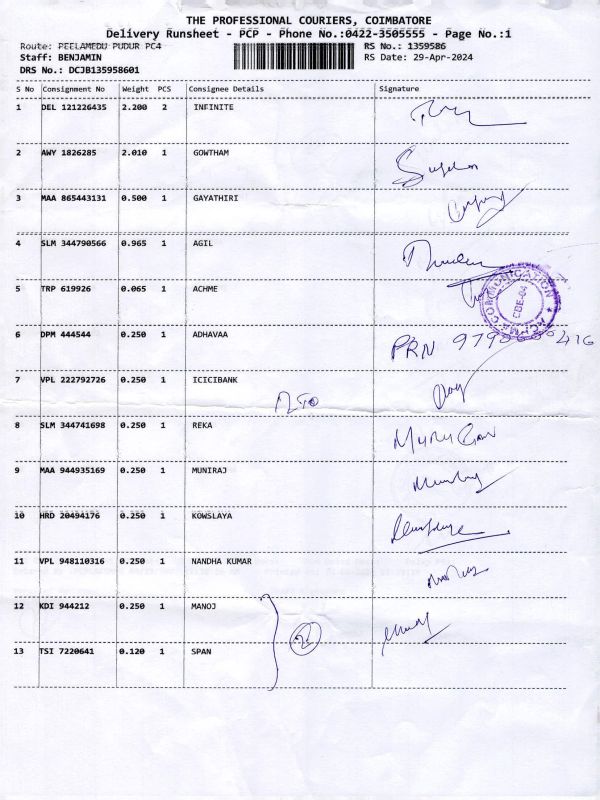 THE PROFESSIONAL COURIERS, COIMBATORE
Delivery Runsheet - PCP - Phone No.:0422-3505555 - Page No.:1
Route: PEELAMEDU PUDUR PC4 RS No.: 1359586
Staff: BENJAMIN RS Date: 29-Apr-2024
DRS No.: DCJB135958601
S No Consignment No Weight PCS Consignee Details Signature
1 DEL 121226435 2.200 2 INFINITE
2 AWY 1826285 2.010 1 GOWTHAM
3 MAA 865443131 0.500 1 GAYATHIRI
4 SLM 344790566 0.965 1 AGIL
5 TRP 619926 0.065 1 ACHME
COMMUNICATION CBE-04
6 DPM 444544 0.250 1 ADHAVAA PRN
7 VPL 222792726 0.250 1 ICICIBANK
8 SLM 344741698 0.250 1 REKA
9 MAA 944935169 0.250 1 MUNIRAJ
10 HRD 20494176 0.250 1 KOWSLAYA
11 VPL 948110316 0.250 1 NANDHA KUMAR
12 KDI 944212 0.250 1 MANOJ
13 TSI 7220641 0.120 1 SPAN